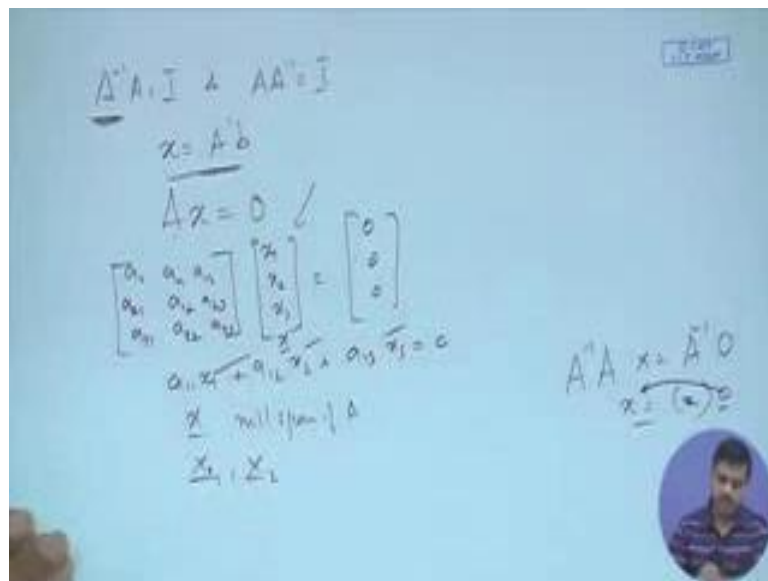 A⁻¹A = I & AA⁻¹ = I
x = A⁻¹b
Ax = 0
[a₁₁ a₁₂ a₁₃] [x₁] = [0]
[a₂₁ a₂₂ a₂₃] [x₂] [0]
[a₃₁ a₃₂ a₃₃] [x₃] [0]
x
a₁₁x₁ + a₁₂x₂ + a₁₃x₃ = 0
x null space of A
x₁, x₂
A⁻¹A x = A⁻¹0
x = 0